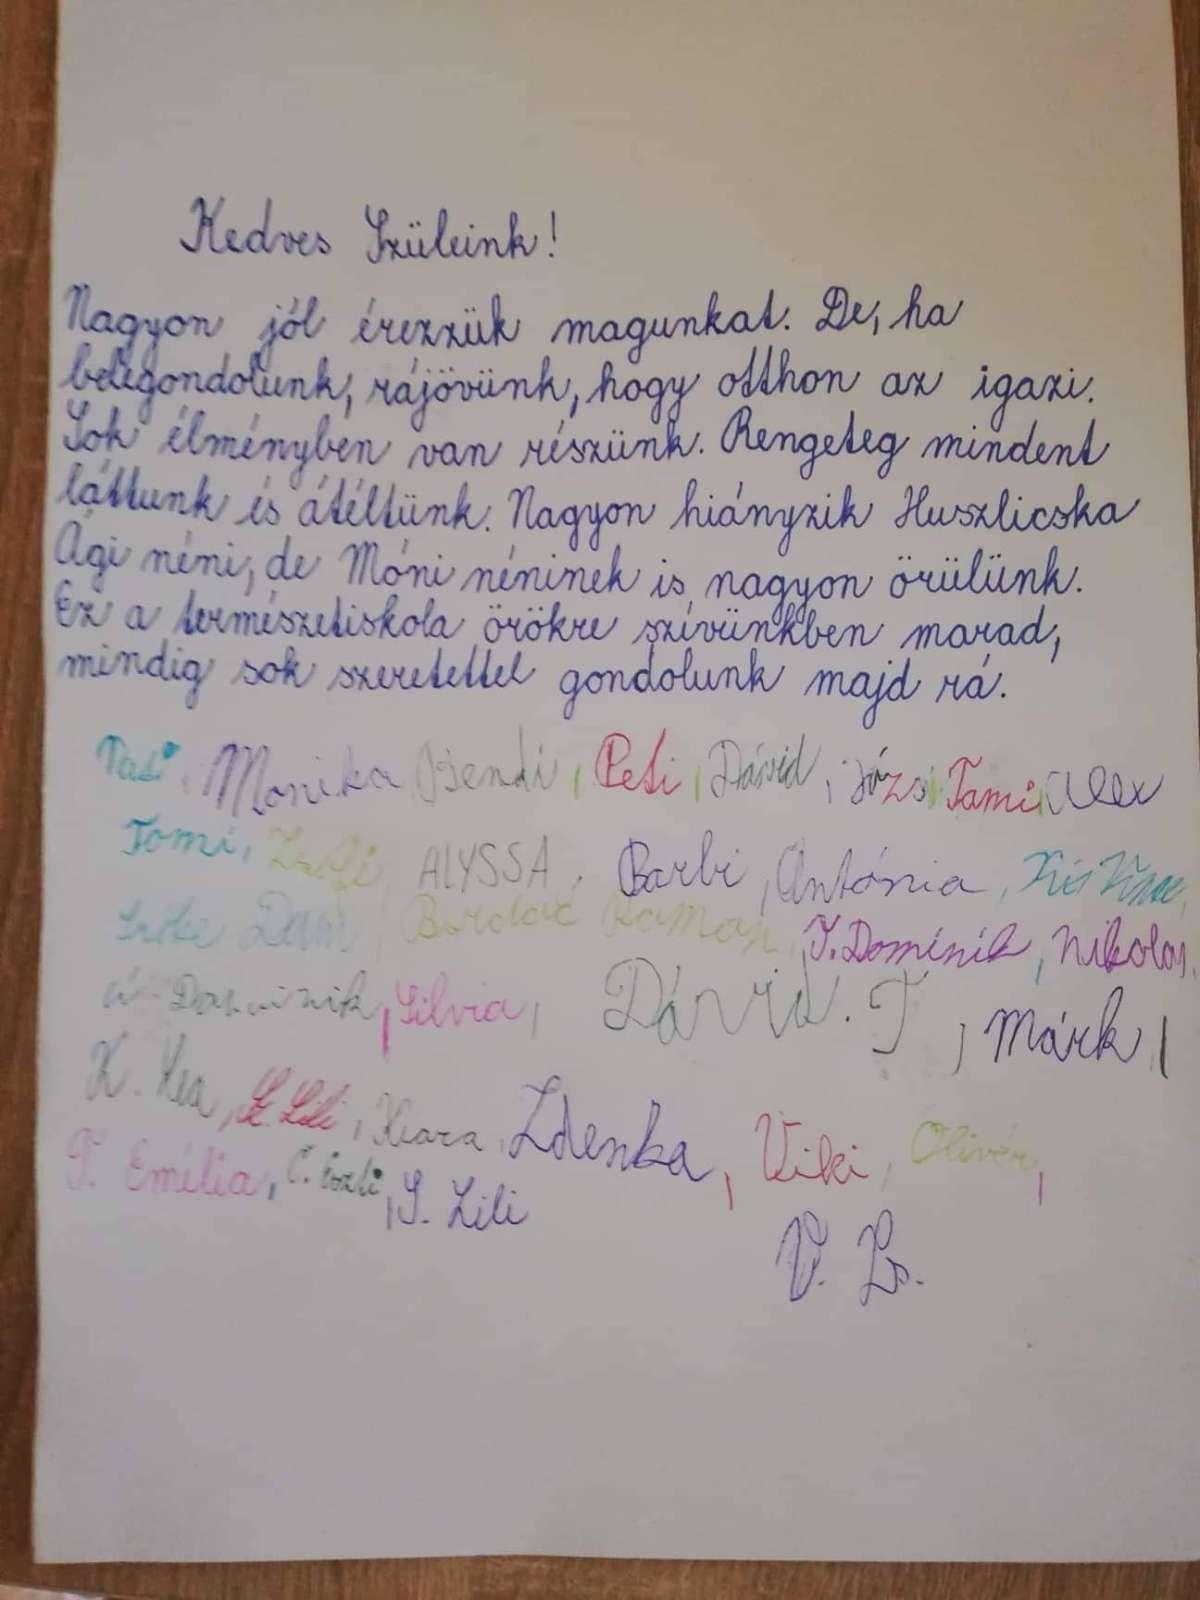 Kedves Szüleink!
Nagyon jól érezzük magunkat. De, ha
belegondolunk, rájövünk, hogy otthon az igazi.
Sok élményben van részünk. Rengeteg mindent
láttunk és átéltünk. Nagyon hiányzik Huszlicska
Ági néni, de Móni néninek is nagyon örülünk.
Ez a természetiskola örökre szívünkben marad,
mindig sok szeretettel gondolunk majd rá.
Monika Bendi, Peti, Dávid, Józsi Tami, Alex
Tomi, ALYSSA, Barbi, Antónia,
Dani, Bordáč Roman, T. Dominik, Nikolas,
Dominik, Silvia, Dávid. T, Márk,
K. Lea, Sz. Lili, Kiara, Zdenka, Viki, Olivér,
T. Emília, C. Eszti, S. Lili
V. Zs.